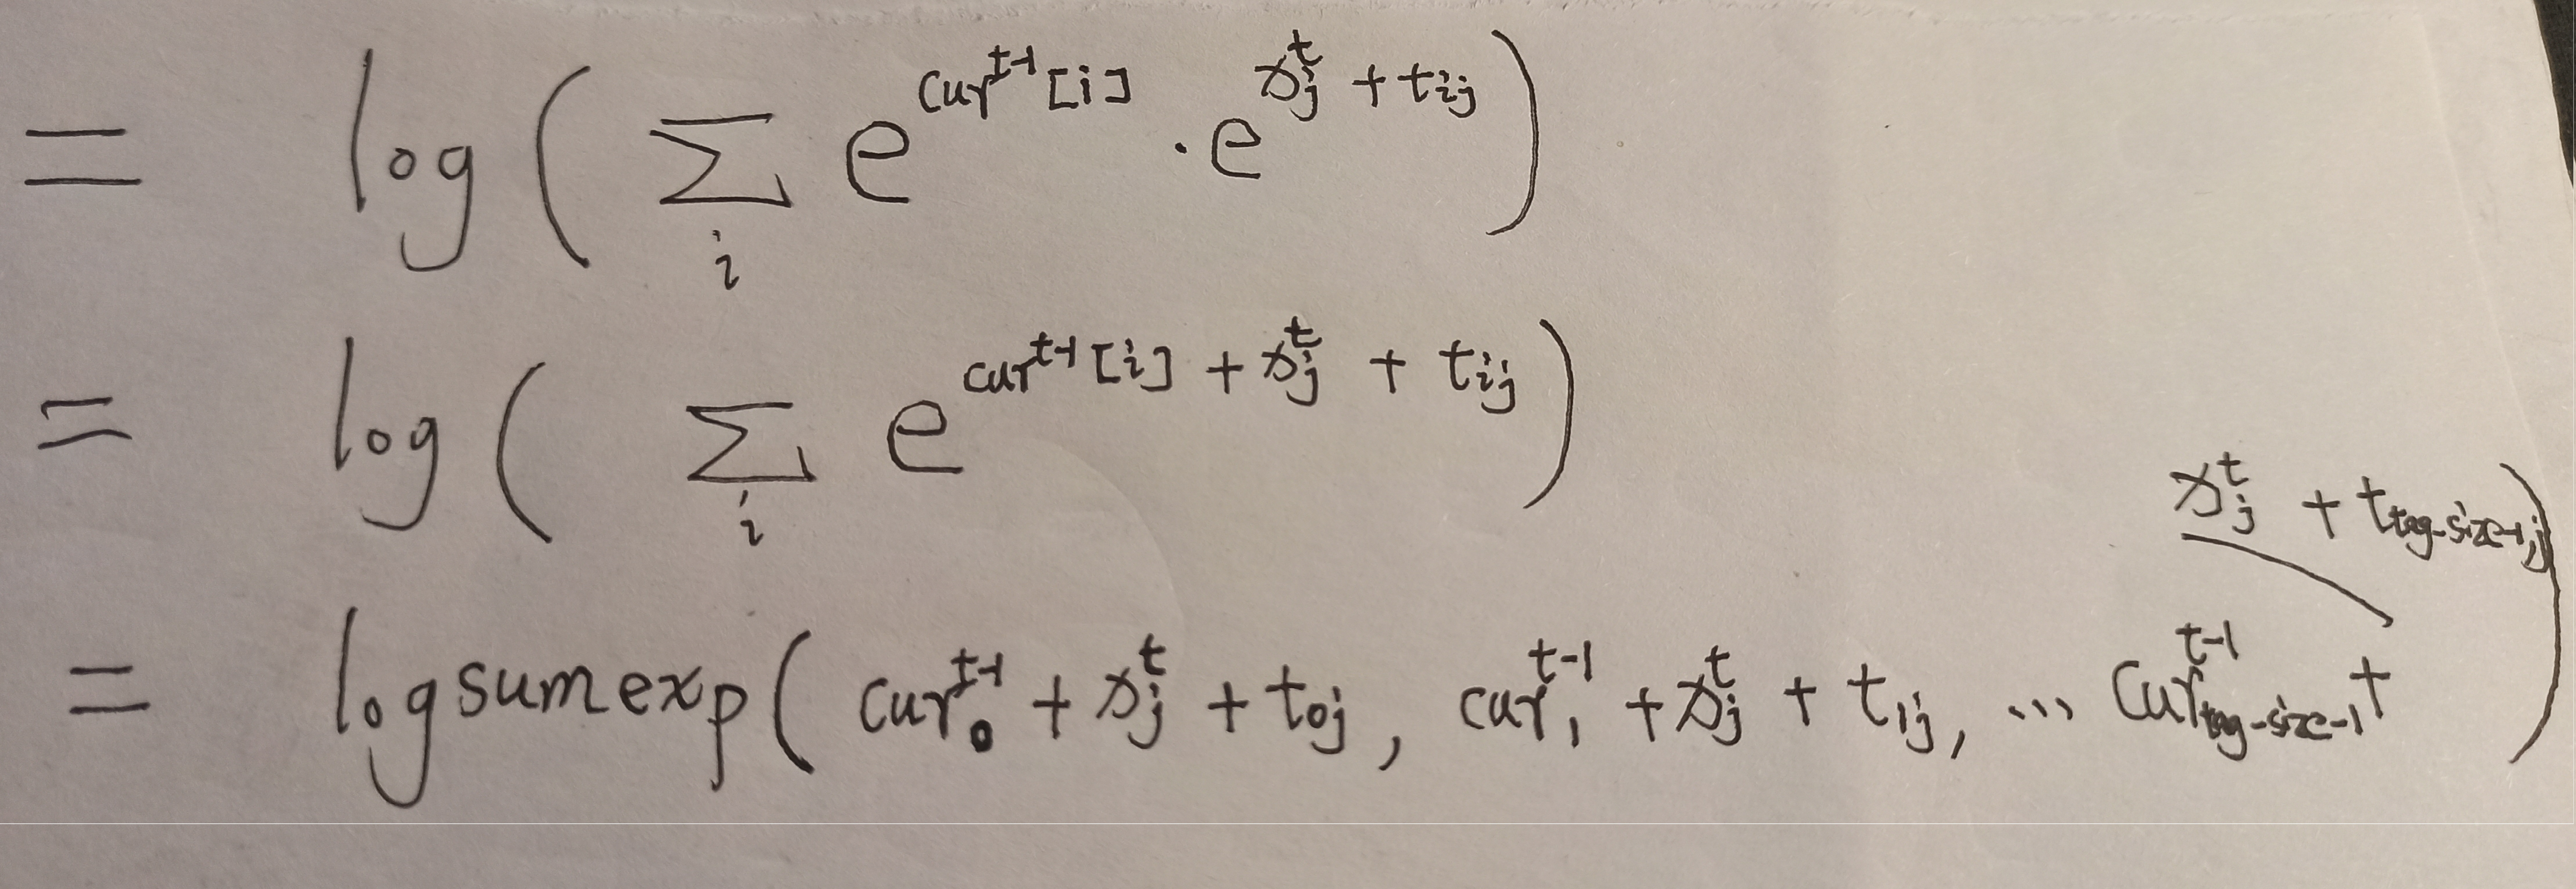 = log ( Σ_i e^{cur^{t-1}[i]} · e^{x_j^t + t_{ij}} )
= log ( Σ_i e^{cur^{t-1}[i] + x_j^t + t_{ij}} )
= logsumexp ( cur_0^{t-1} + x_j^t + t_{0j}, cur_1^{t-1} + x_j^t + t_{1j}, ... cur_{tag-size-1}^{t-1} + x_j^t + t_{tag-size-1,j} )